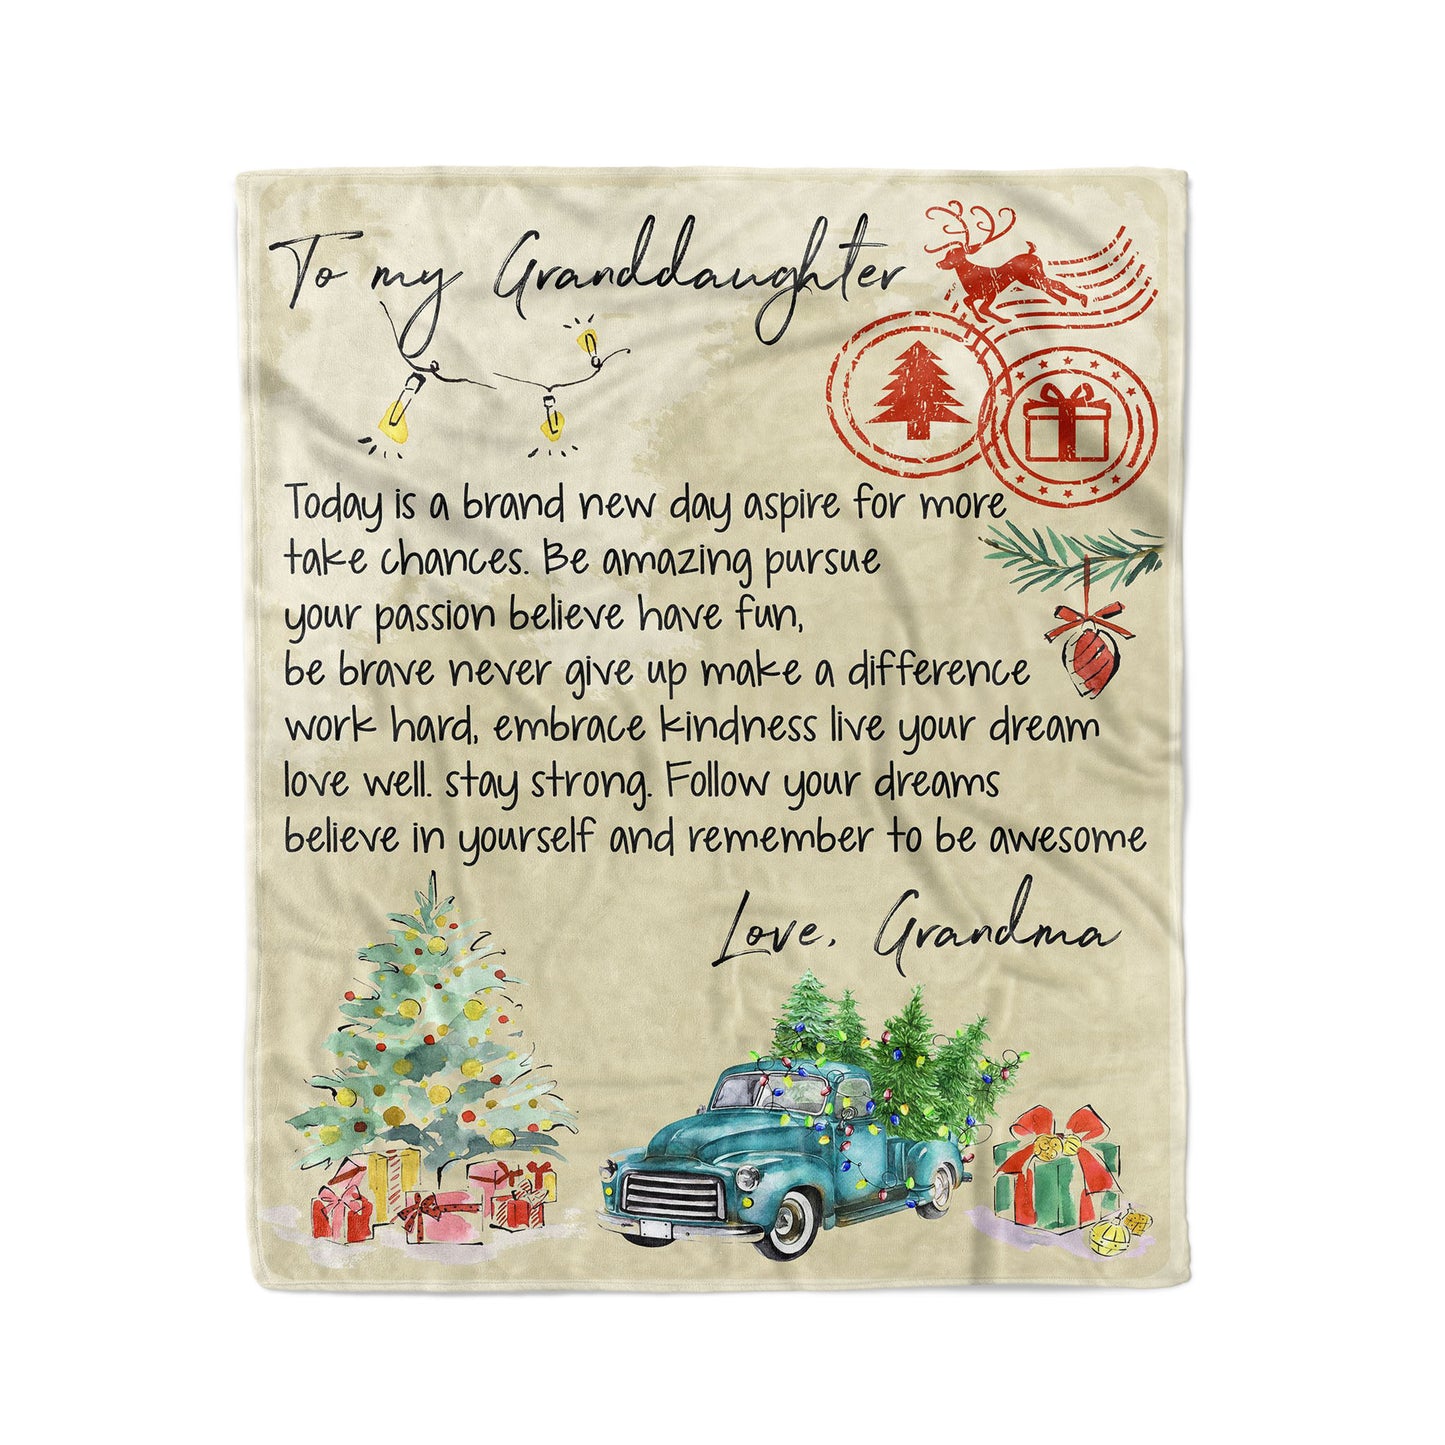 To my Granddaughter
Today is a brand new day aspire for more
take chances. Be amazing pursue
your passion believe have fun,
be brave never give up make a difference
work hard, embrace kindness live your dream
love well. stay strong. Follow your dreams
believe in yourself and remember to be awesome
Love, Grandma